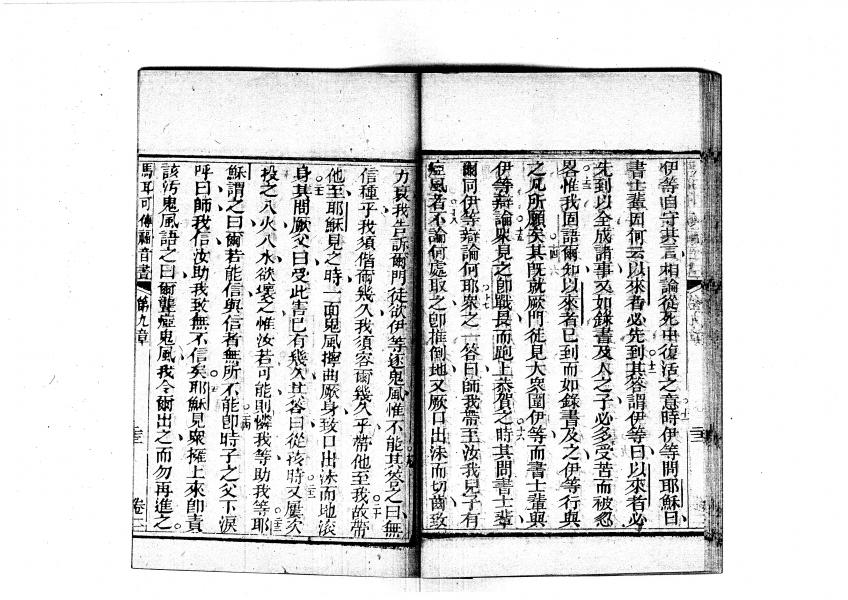 伊等自守其言相論從死中復活之意時伊等問耶穌曰
書士輩因何云以來者必先到其答謂伊等曰以來者必
先到以全成諸事又如錄書及人之子必多受苦而被忽
畧惟我固語爾知以來者已到而如錄書及之伊等行與
之凡所願矣其既就厥門徒見大衆圍伊等而書士輩與
伊等辯論衆見之卽戰長而跑上恭賀之時其問書士輩
爾同伊等辯論何耶衆之一答曰師我帶至汝我兒子有
瘂風者不論何處取之卽推倒地又厥口出沬而切齒致
力衰我吿訴爾門徒欲伊等逐鬼風惟不能其答之曰無
信種乎我須偕爾幾久我須容爾幾久乎帶他至我故帶
他至耶穌見之時一面鬼風搜曲厥身致口出沬而地滚
身其問厥父曰受此害已有幾久其答曰從孩時又屢次
投之入火入水欲壞之惟汝若可能則憐我等助我等耶
穌謂之曰爾若能信與信者無所不能卽時子之父下淚
呼曰師我信汝助我致無不信矣耶穌見衆擁上來卽責
該污鬼風語之曰爾聾瘂鬼風我令爾出之而勿再進之
馬耳可傳福音書 第九章 三 卷二